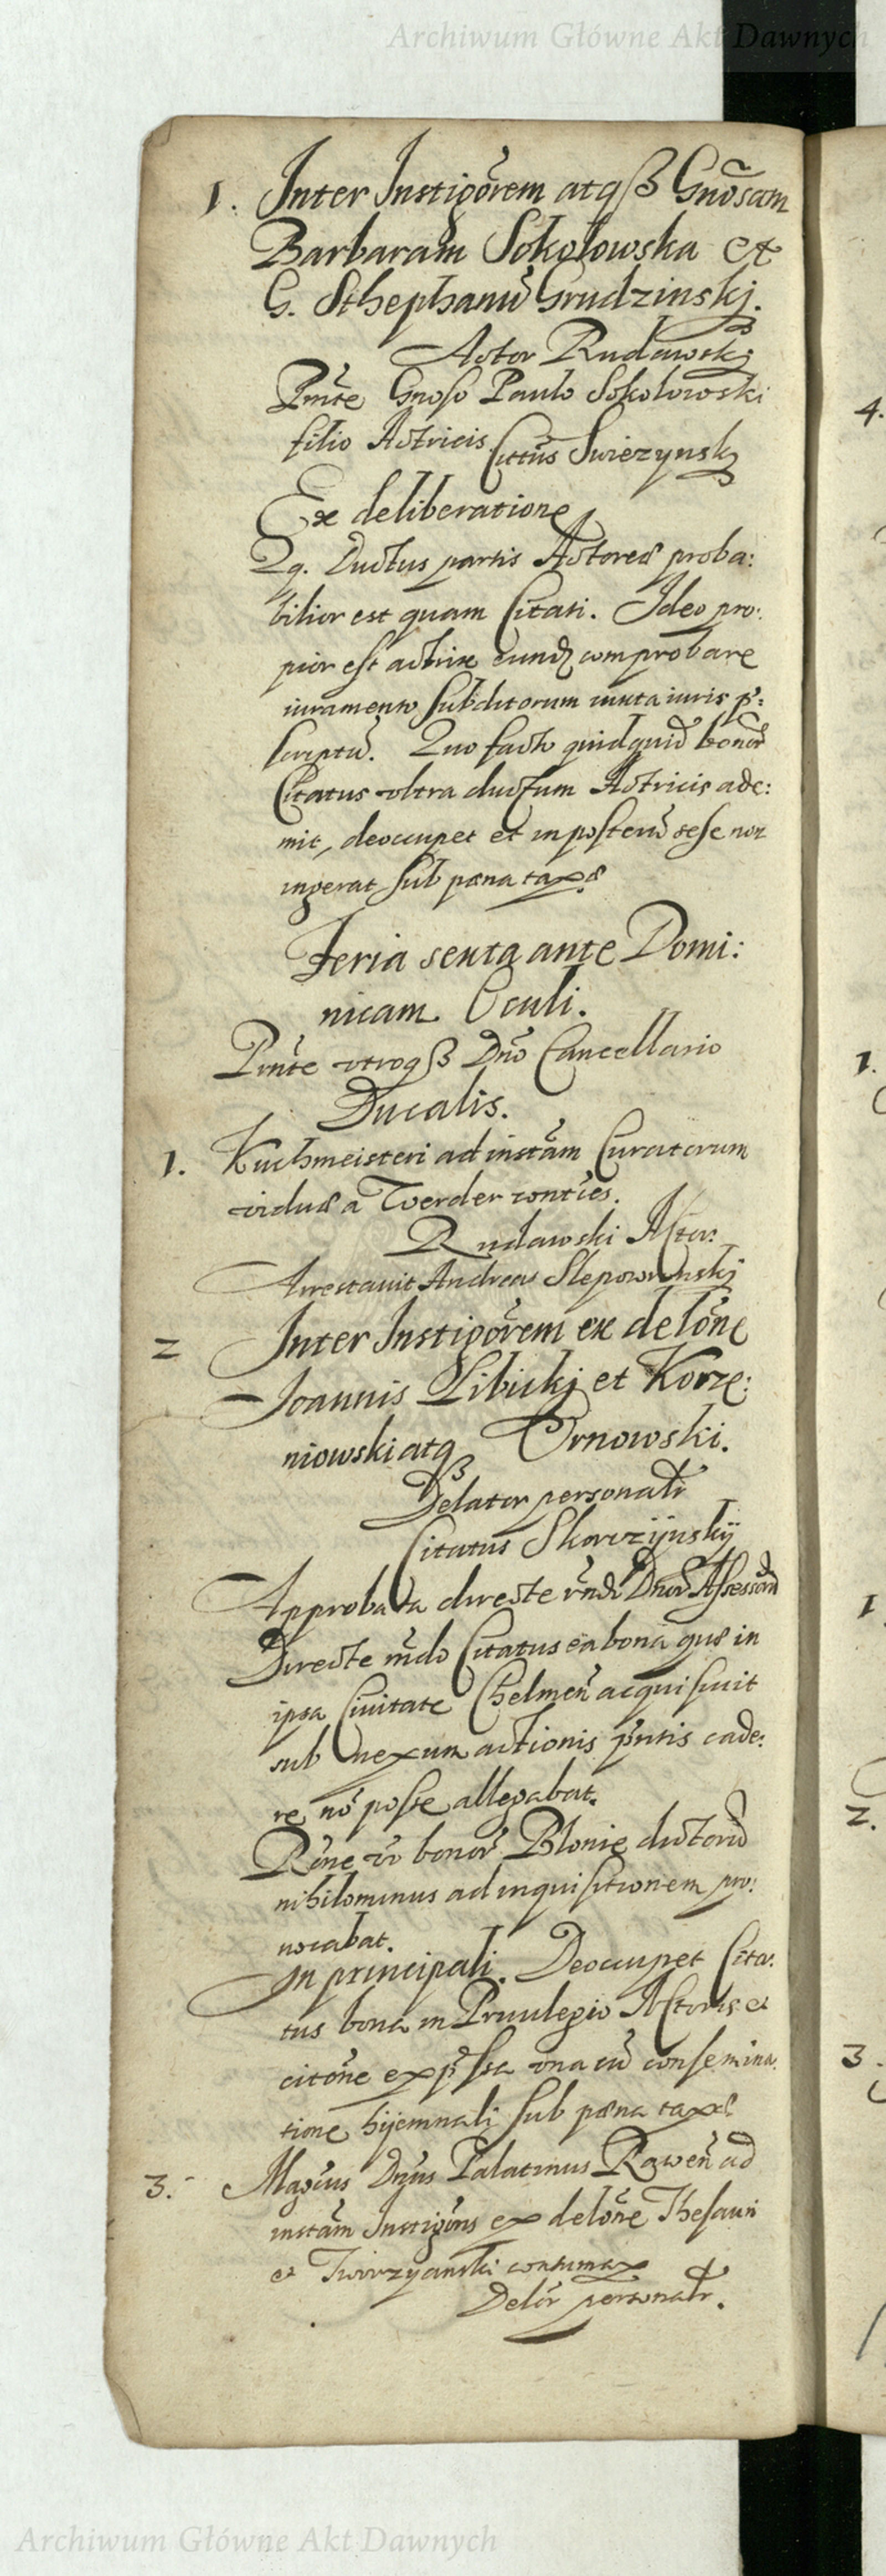 Archiwum Główne Akt Dawnych
1. Inter Instigõrem atqß Gnõsam
Barbaram Sokołowska et
G. Sthephanũ Grudzinskj.
Actor Rudawskj
Pñte Gnoso Paulo Sokolowski
filio Actricis Cittũs Swiezynskj
Ex deliberatione
Zq. Ductus partis Actoreæ proba:
bilior est quam Citati. Ideo pro:
pior est actrix eund comprobare
iuramento subditorum iuxta iuris p̃:
scriptũ. Quo facto quidquid bonor
Citatus vltra ductum Actricis ade:
mit, deoccupet et in posterũ sese non
ingerat sub pæna taxæ
Feria sexta ante Domi:
nicam Oculi.
Pñte vtroqß Dño Cancellario
Ducalis.
1. Kuchmeisteri ad instãm Curatorum
viduæ a Werder conties.
Rudawski Actor
Arrestauit Andreas Slepowronskj
2 Inter Instigõrem ex delõne
Joannis Libickj et Korze:
niowski atqß Ornowski.
Delator personalr
Citatus Skorczÿnskÿ
Approbata directe rñdi Dnor Assessorũ
Directe rñdo Citatus ea bona quæ in
ipsa Ciuitate Chelmeñ acquisiuit
sub nexum actionis p̃ntis cade:
re nõ posse allegabat.
Rõne vr bonor Blonie ductorũ
nihilominus ad inquisitionem pro:
uocabat.
In principali. Deoccupet Cita:
tus bona in Priuilegio Actoris et
citõne exp̃ssa vna cũ consemina:
tione hÿemnali sub pæna taxæ
3. Magcus Dnus Palatinus Raweñ ad
instãm Instigoris ex delõne Thesauri
et Twirzyanski contumax
Delõr personalr.
4.
1.
1
2.
3.
Archiwum Główne Akt Dawnych